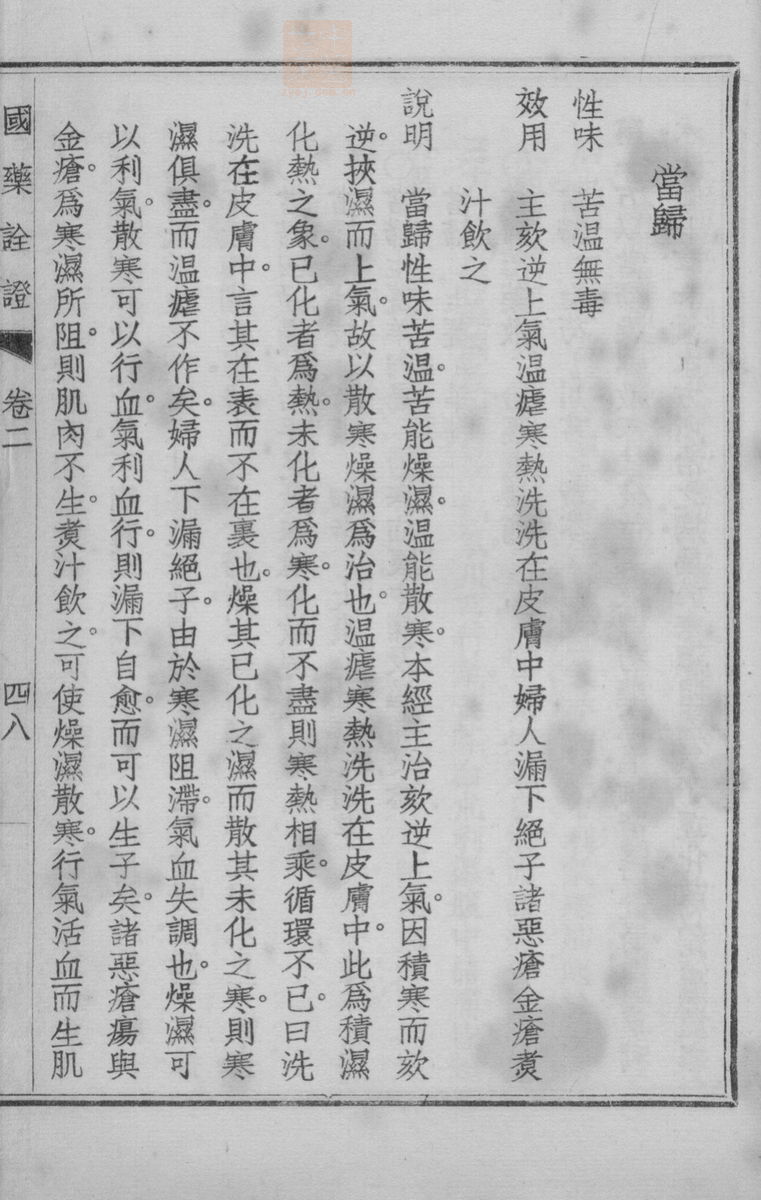 當歸
性味　苦温無毒
效用　主欬逆上氣温瘧寒熱洗洗在皮膚中婦人漏下絕子諸惡瘡金瘡煑
汁飲之
說明　當歸性味苦温。苦能燥濕。温能散寒。本經主治欬逆上氣。因積寒而欬
逆。挾濕而上氣。故以散寒燥濕爲治也。温瘧寒熱洗洗在皮膚中。此爲積濕
化熱之象。已化者爲熱。未化者爲寒。化而不盡則寒熱相乘。循環不已。曰洗
洗在皮膚中。言其在表而不在裏也。燥其已化之濕而散其未化之寒。則寒
濕俱盡。而温瘧不作矣。婦人下漏絕子。由於寒濕阻滯。氣血失調也。燥濕可
以利氣。散寒可以行血。氣利血行。則漏下自愈。而可以生子矣。諸惡瘡瘍與
金瘡。爲寒濕所阻。則肌肉不生。煑汁飲之。可使燥濕散寒。行氣活血而生肌
國藥詮證　卷二　四八